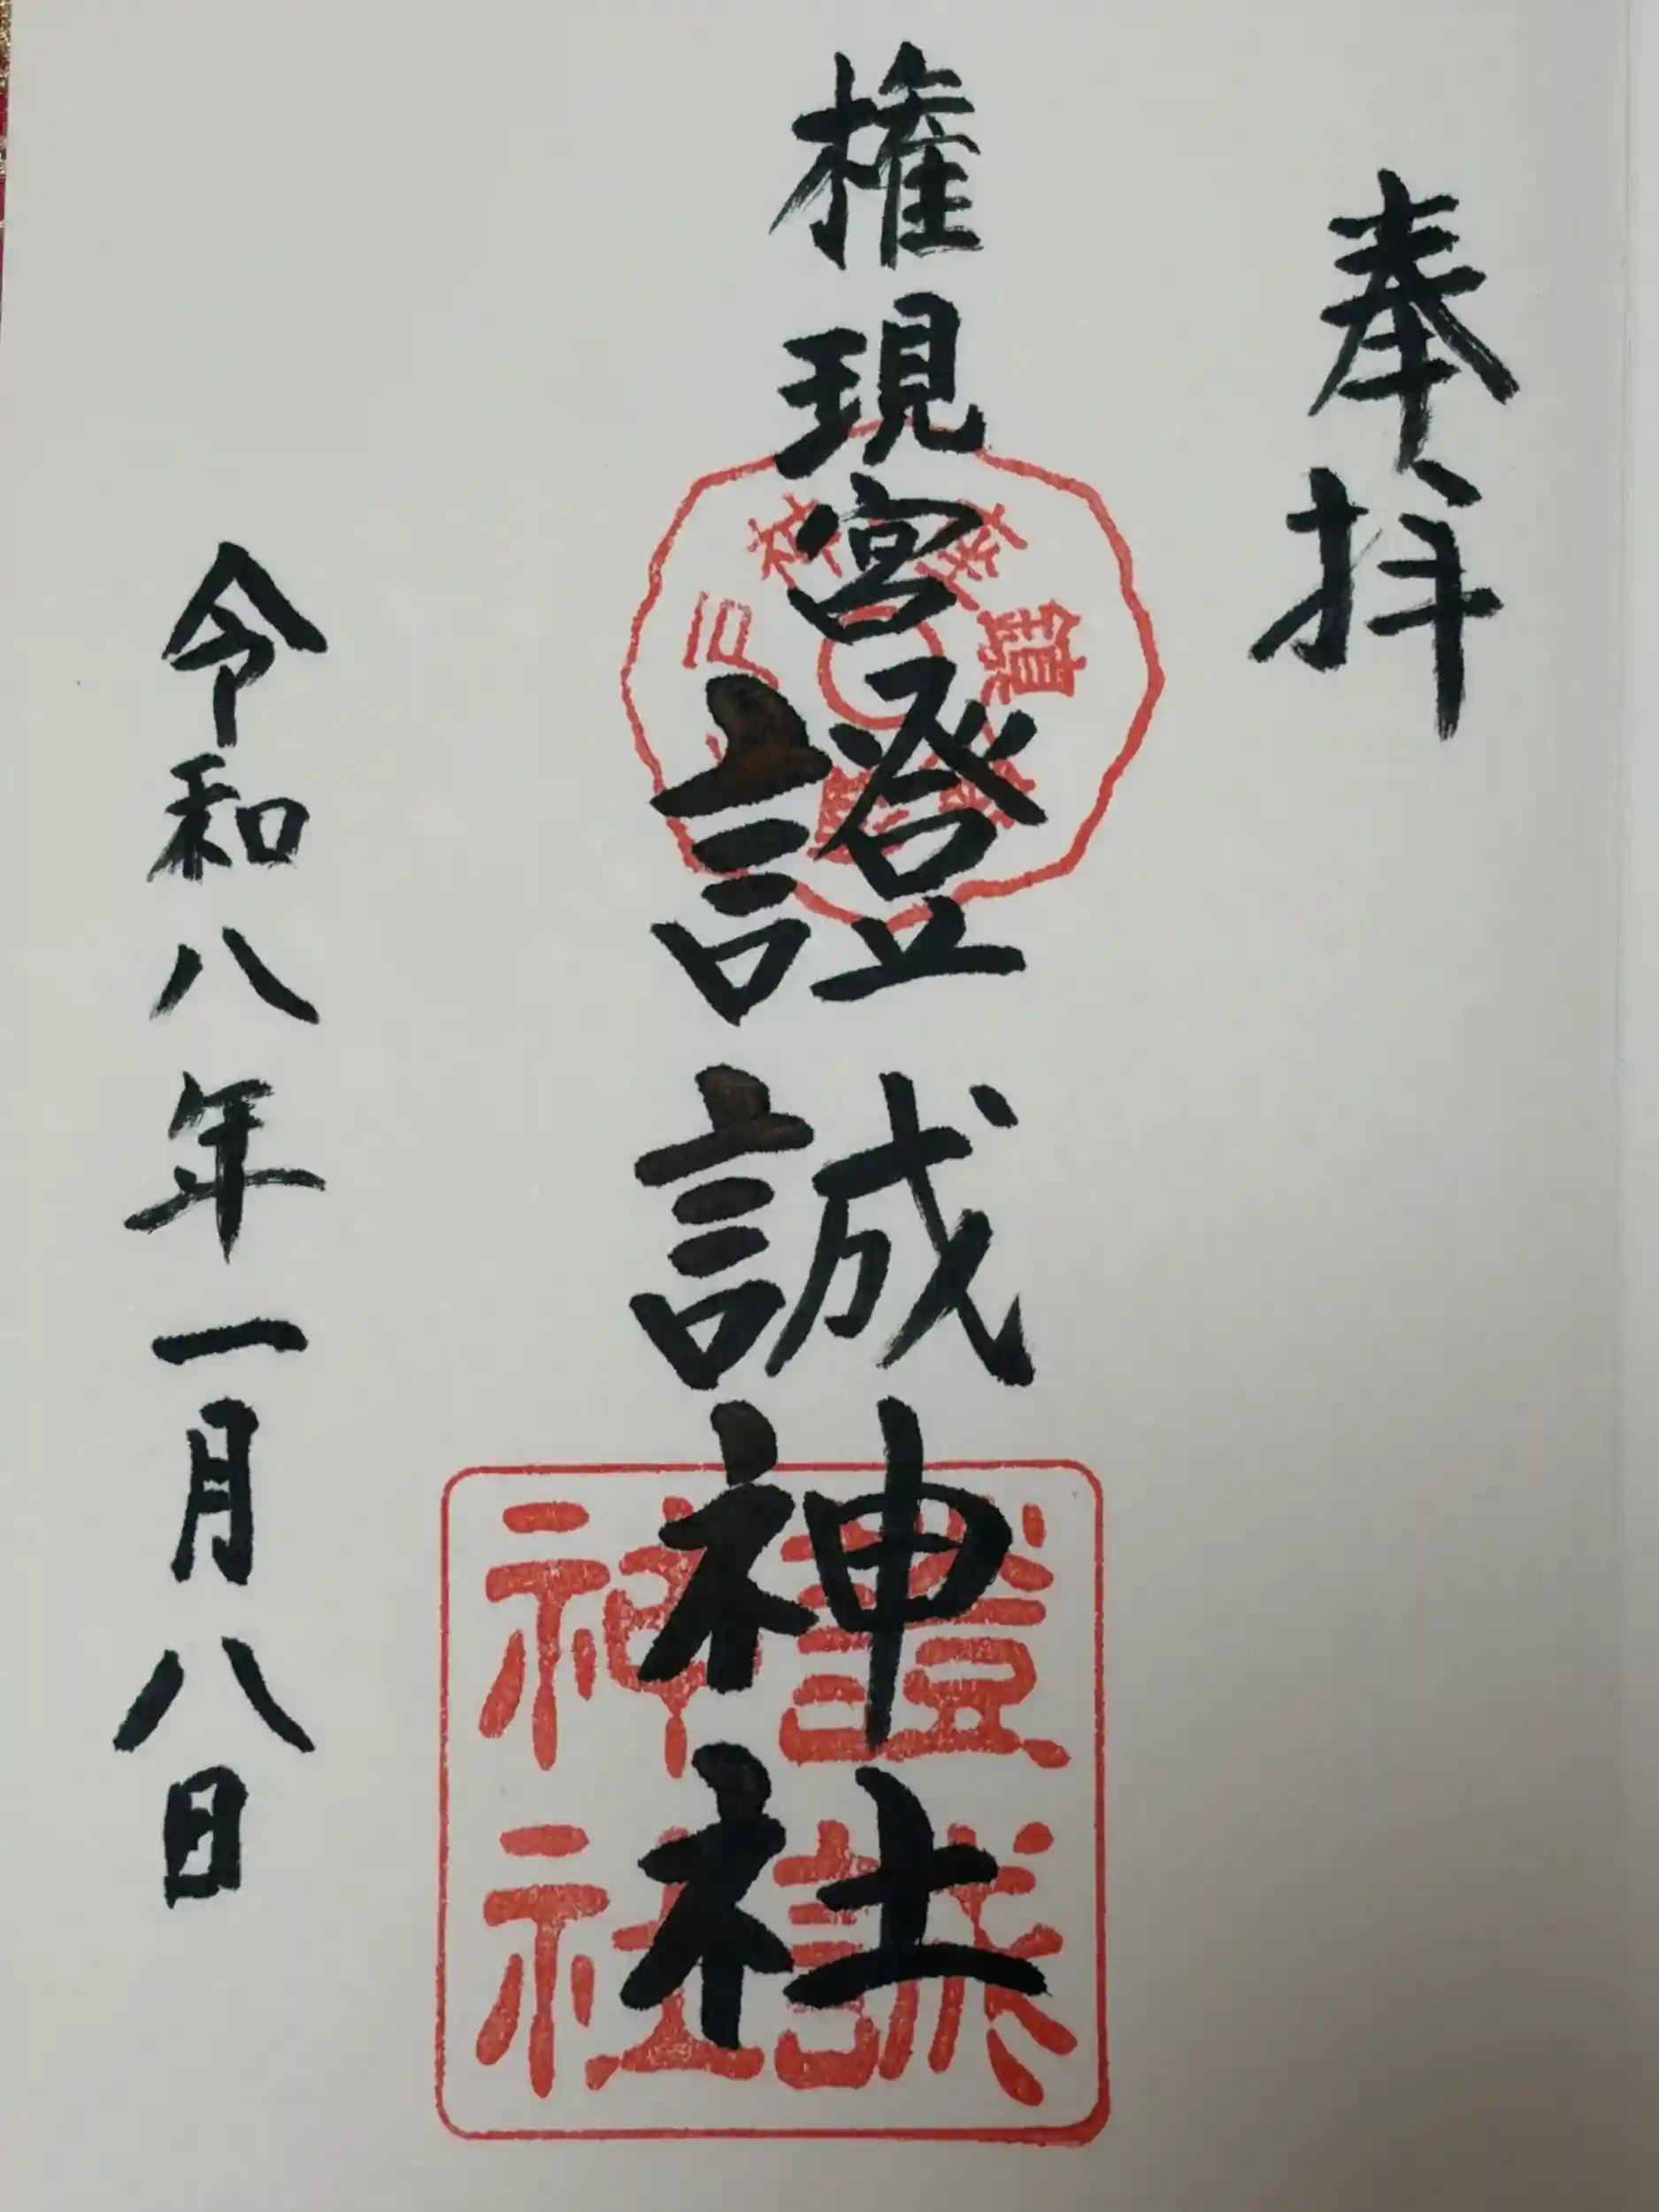 奉拝
権現宮證誠神社
證誠
神社
令和八年一月八日